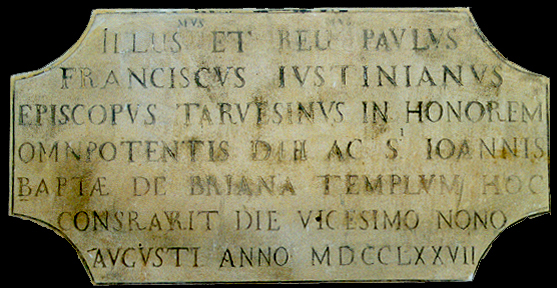 ILLUSMVS ET REU PAVLVS
FRANCISCVS IVSTINIANVS
EPISCOPVS TARVESINVS IN HONOREM
OMNPOTENTIS DEI AC SI IOANNIS
BAPTÆ DE BRIANA TEMPLVM HOC
CONSRAVRIT DIE VICESIMO NONO
AVGVSTI ANNO MDCCLXXVII